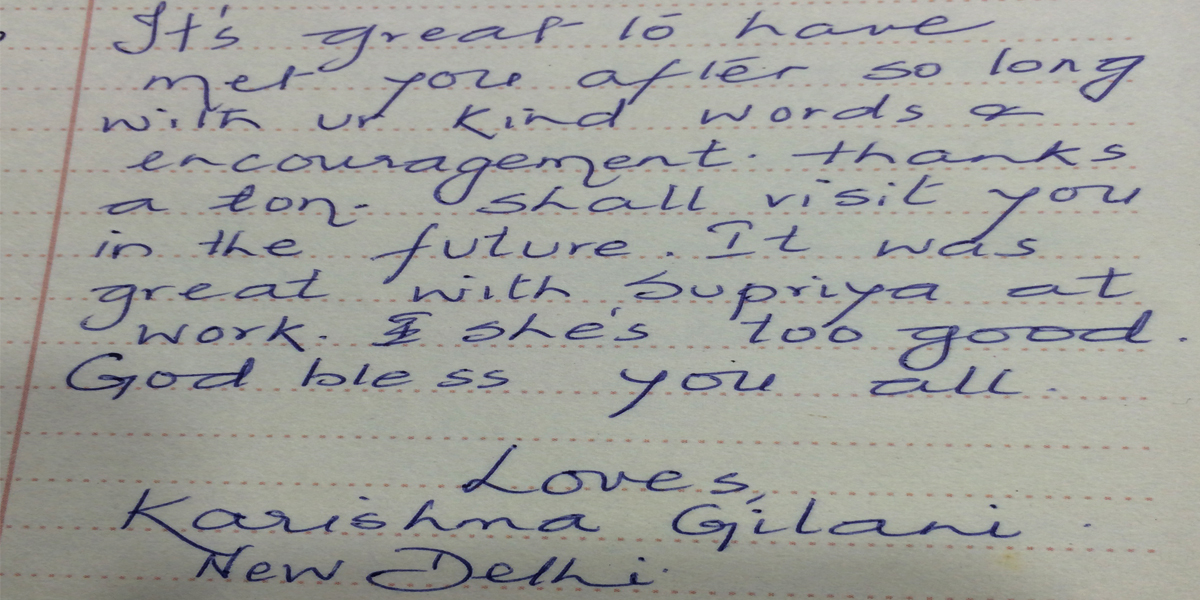 It's great to have
met you after so long
with ur kind words &
encouragement. thanks
a ton. shall visit you
in the future. It was
great with Supriya at
work. she's too good.
God bless you all.
Loves,
Karishma Gilani.
New Delhi.